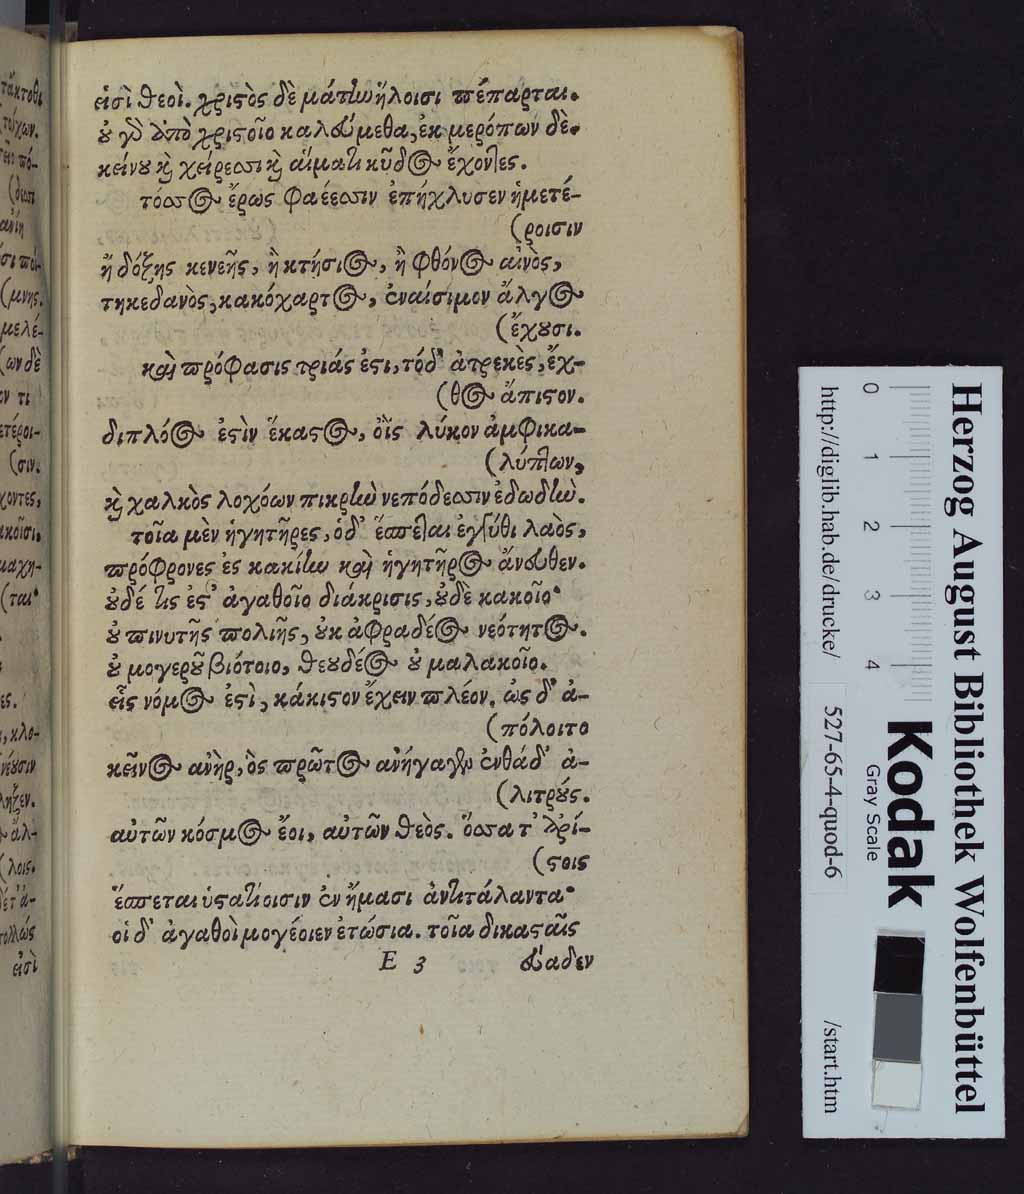 εἰσὶ θεοὶ. χριστὸς δὲ μάτην ἥλοισι πέπαρται.
οὐ γὰρ ἀπὸ χριστοῖο καλεύμεθα, ἐκ μερόπων δὲ.
κείνου καὶ χείρεσσι καὶ αἵματι κῦδος ἔχοντες.
τόσσος ἔρως φαέεσσιν ἐπήχλυσεν ἡμετέ-
(ροισιν
ἢ δόξης κενεῆς, ἢ κτήσιος, ἢ φθόνος αἰνὸς,
τηκεδανὸς, κακόχαρτος, ἐναίσιμον ἄλγος
(ἔχουσι.
καὶ πρόφασις τριάς ἐστι, τόδ' ἀτρεκὲς, ἔχ-
(θος ἄπιστον.
διπλόος ἐστὶν ἕκαστος, ὄϊς λύκον ἀμφικα-
(λύπτων,
καὶ χαλκὸς λοχόων πικρὴν νεπόδεσσιν ἐδωδὴν.
τοῖα μὲν ἡγητῆρες, ὁδ' ἕσπεται ἐγγύθι λαὸς,
πρόφρονες ἐς κακίην καὶ ἡγητῆρος ἄνευθεν.
οὐδέ τις ἐστ' ἀγαθοῖο διάκρισις, οὐδὲ κακοῖο·
οὐ πινυτῆς πολιῆς, οὐκ ἀφραδέος νεότητος.
οὐ μογεροῦ βιότοιο, θευδέος οὐ μαλακοῖο.
εἷς νόμος ἐστὶ, κάκιστον ἔχειν πλέον. ὡς δ' ἀ-
(πόλοιτο
κεῖνος ἀνὴρ, ὃς πρῶτος ἀνήγαγεν ἐνθάδ' ἀ-
(λιτρούς.
αὐτῶν κόσμος ἔοι, αὐτῶν θεὸς. ὅσσα τ' ἀρί-
(στοις
ἕσπεται ὑστατίοισιν ἐν ἤμασι ἀντιτάλαντα·
οἱ δ' ἀγαθοὶ μογέοιεν ἐτώσια. τοῖα δικασταῖς
E 3 εὔαδεν
τάκτοθι
τοίχων.
μελέ-
(ων δὲ
ετέροι-
(σιν.
χοντες,
ακοῖσι.
μαχη-
(ται·
νέουσιν
(λοις.
πολλῶς
εἰσὶ
Herzog August Bibliothek Wolfenbüttel
Kodak
Gray Scale
0 1 2 3 4
http://diglib.hab.de/drucke/ 527-65-4-quod-6 /start.htm